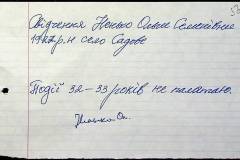 Свідчення Ненько Ольги Семенівни
19 р.н село Садове
Події 32–33 років не памʼятаю.